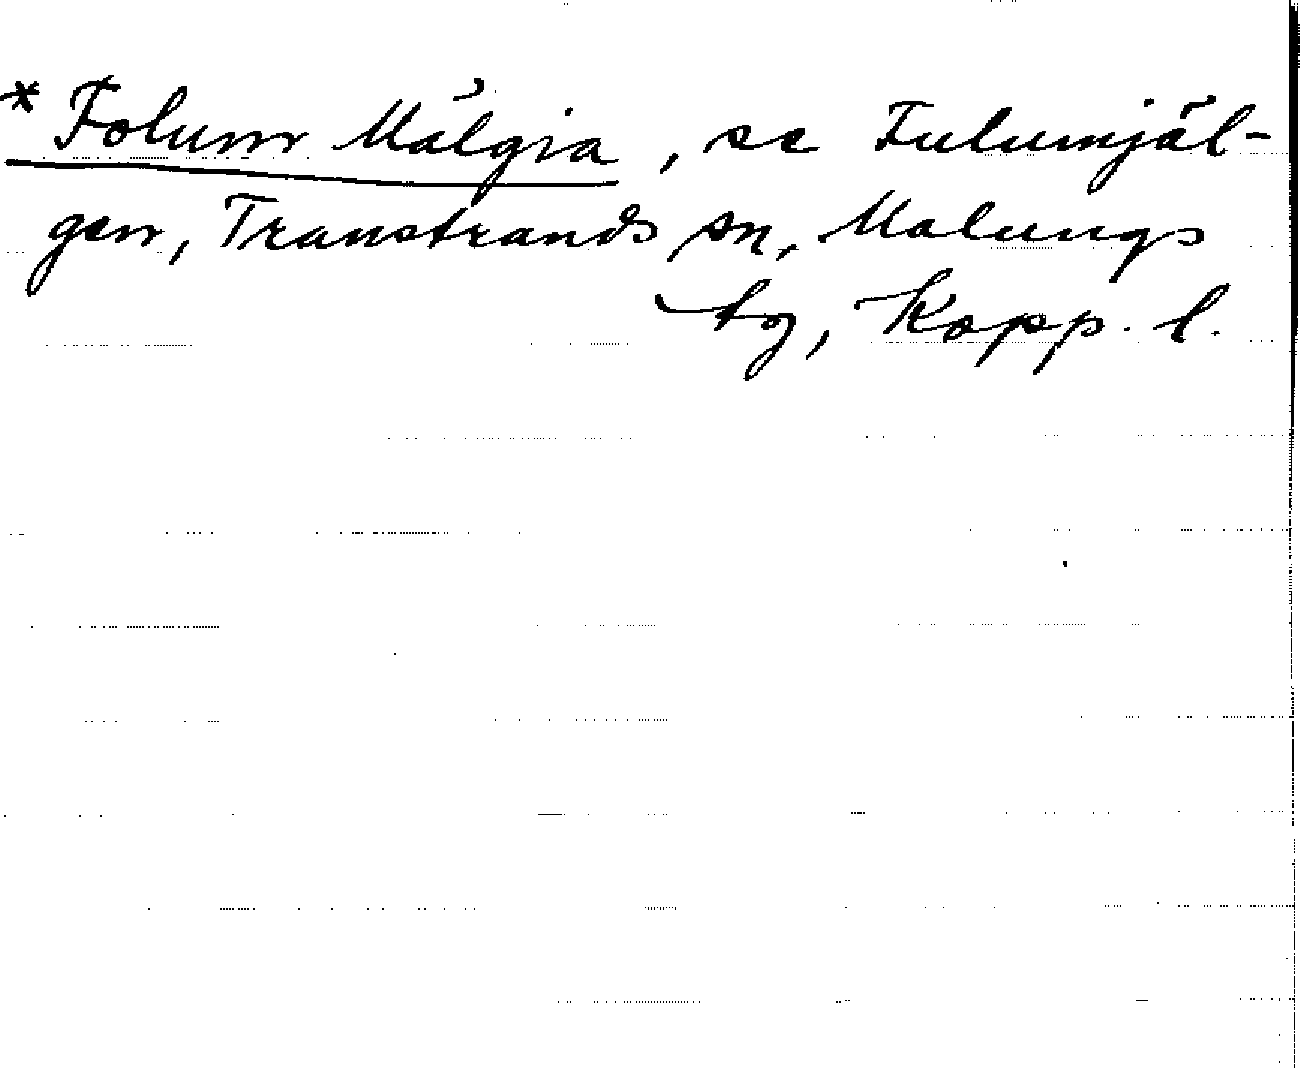 * Folum Målgia, se Fulumjäl-
gen, Transtrands sn, Malungs
tg, Kopp. l.